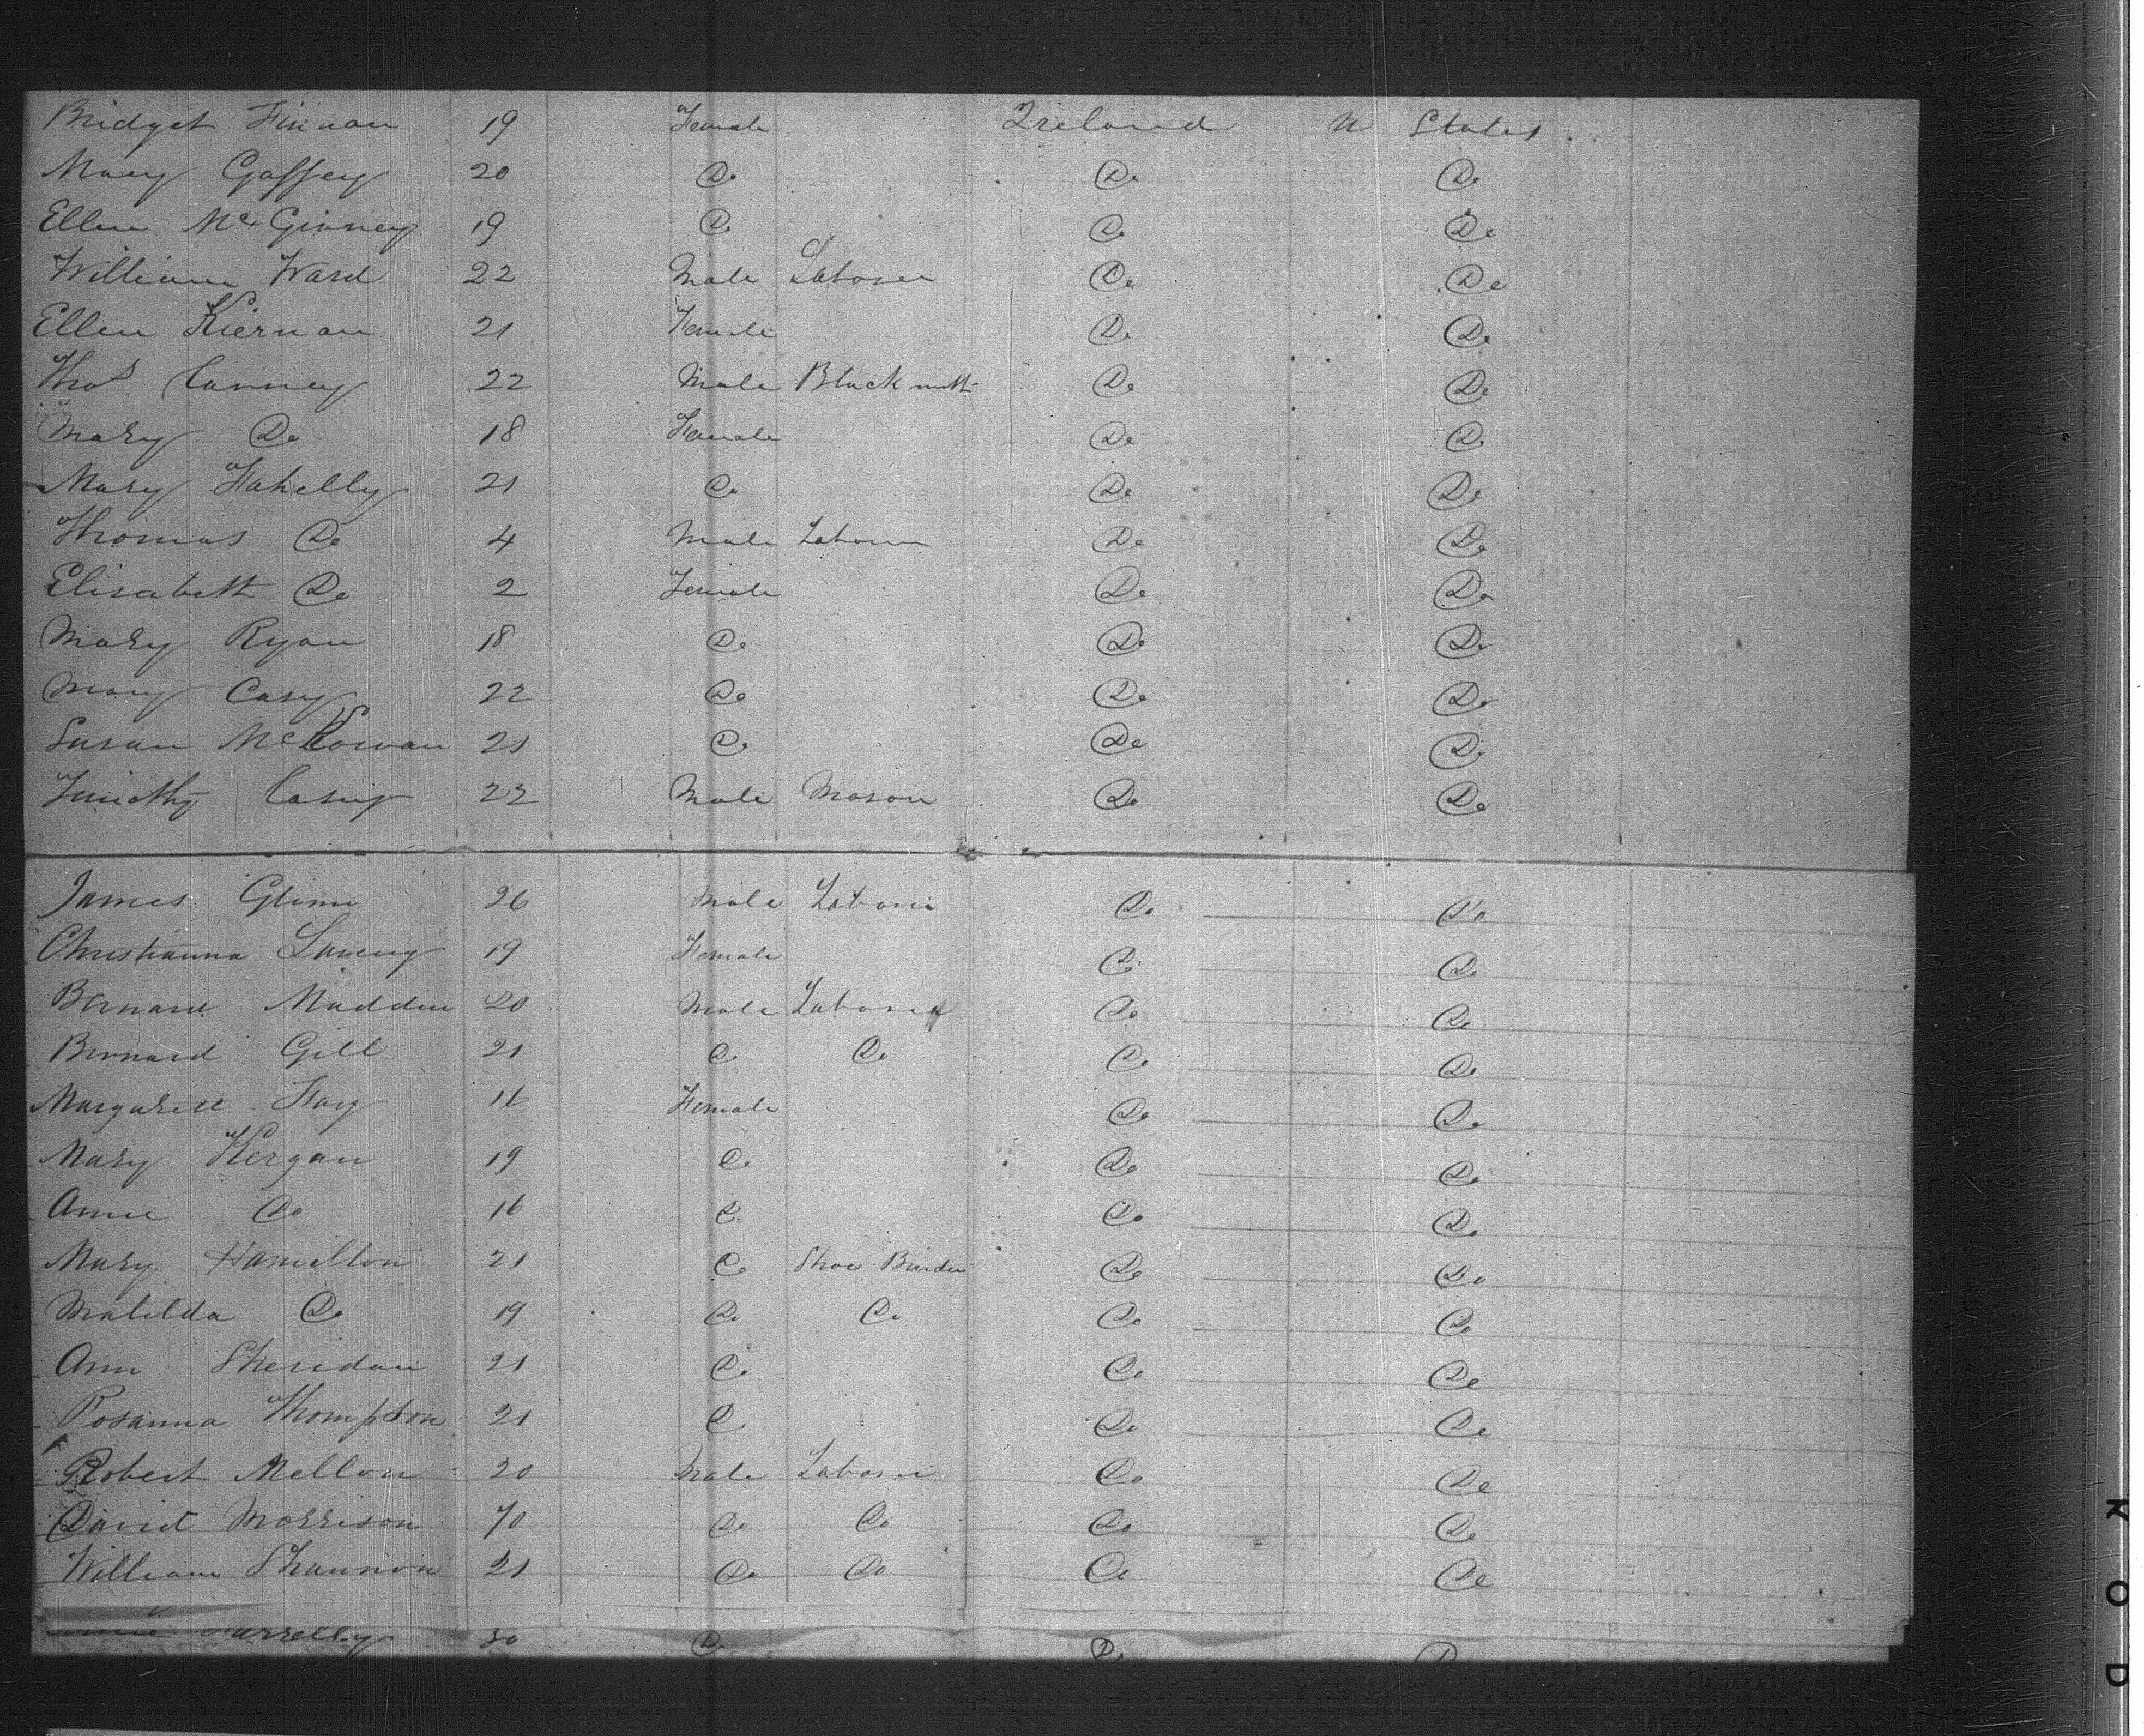 Bridget Finnan 19 Female Ireland U States
Mary Gaffey 20 Do Do Do
Ellen McGinney 19 Do Do Do
William Ward 22 Male Laborer Do Do
Ellen Kiernan 21 Female Do Do
Thos Canney 22 Male Blacksmith Do Do
Mary Do 18 Female Do Do
Mary Fahelly 21 Do Do Do
Thomas Do 4 Male Laborer Do Do
Elisabeth Do 2 Female Do Do
Mary Ryan 18 Do Do Do
Mary Casy 22 Do Do Do
Susan McKowan 21 Do Do Do
Timothy Casey 22 Male Mason Do Do
James Glinn 26 Male Laborer Do Do
Christianna 19 Female Do Do
Bernard Madden 20 Male Laborer Do Do
Bernard Gill 21 Do Do Do Do
Margarett Fay 16 Female Do Do
Mary Kergan 19 Do Do Do
Anne Do 16 Do Do Do
Mary Hamilton 21 Do Shoe Binder Do Do
Matilda Do 19 Do Do Do Do
Ann Sheridan 21 Do Do Do
Rosanna Thompson 21 Do Do Do
Robert Mellon 20 Male Laborer Do Do
David Morrison 70 Do Do Do Do
William Shannon 21 Do Do Do Do
Farrelly 30 Do Do Do
K O D